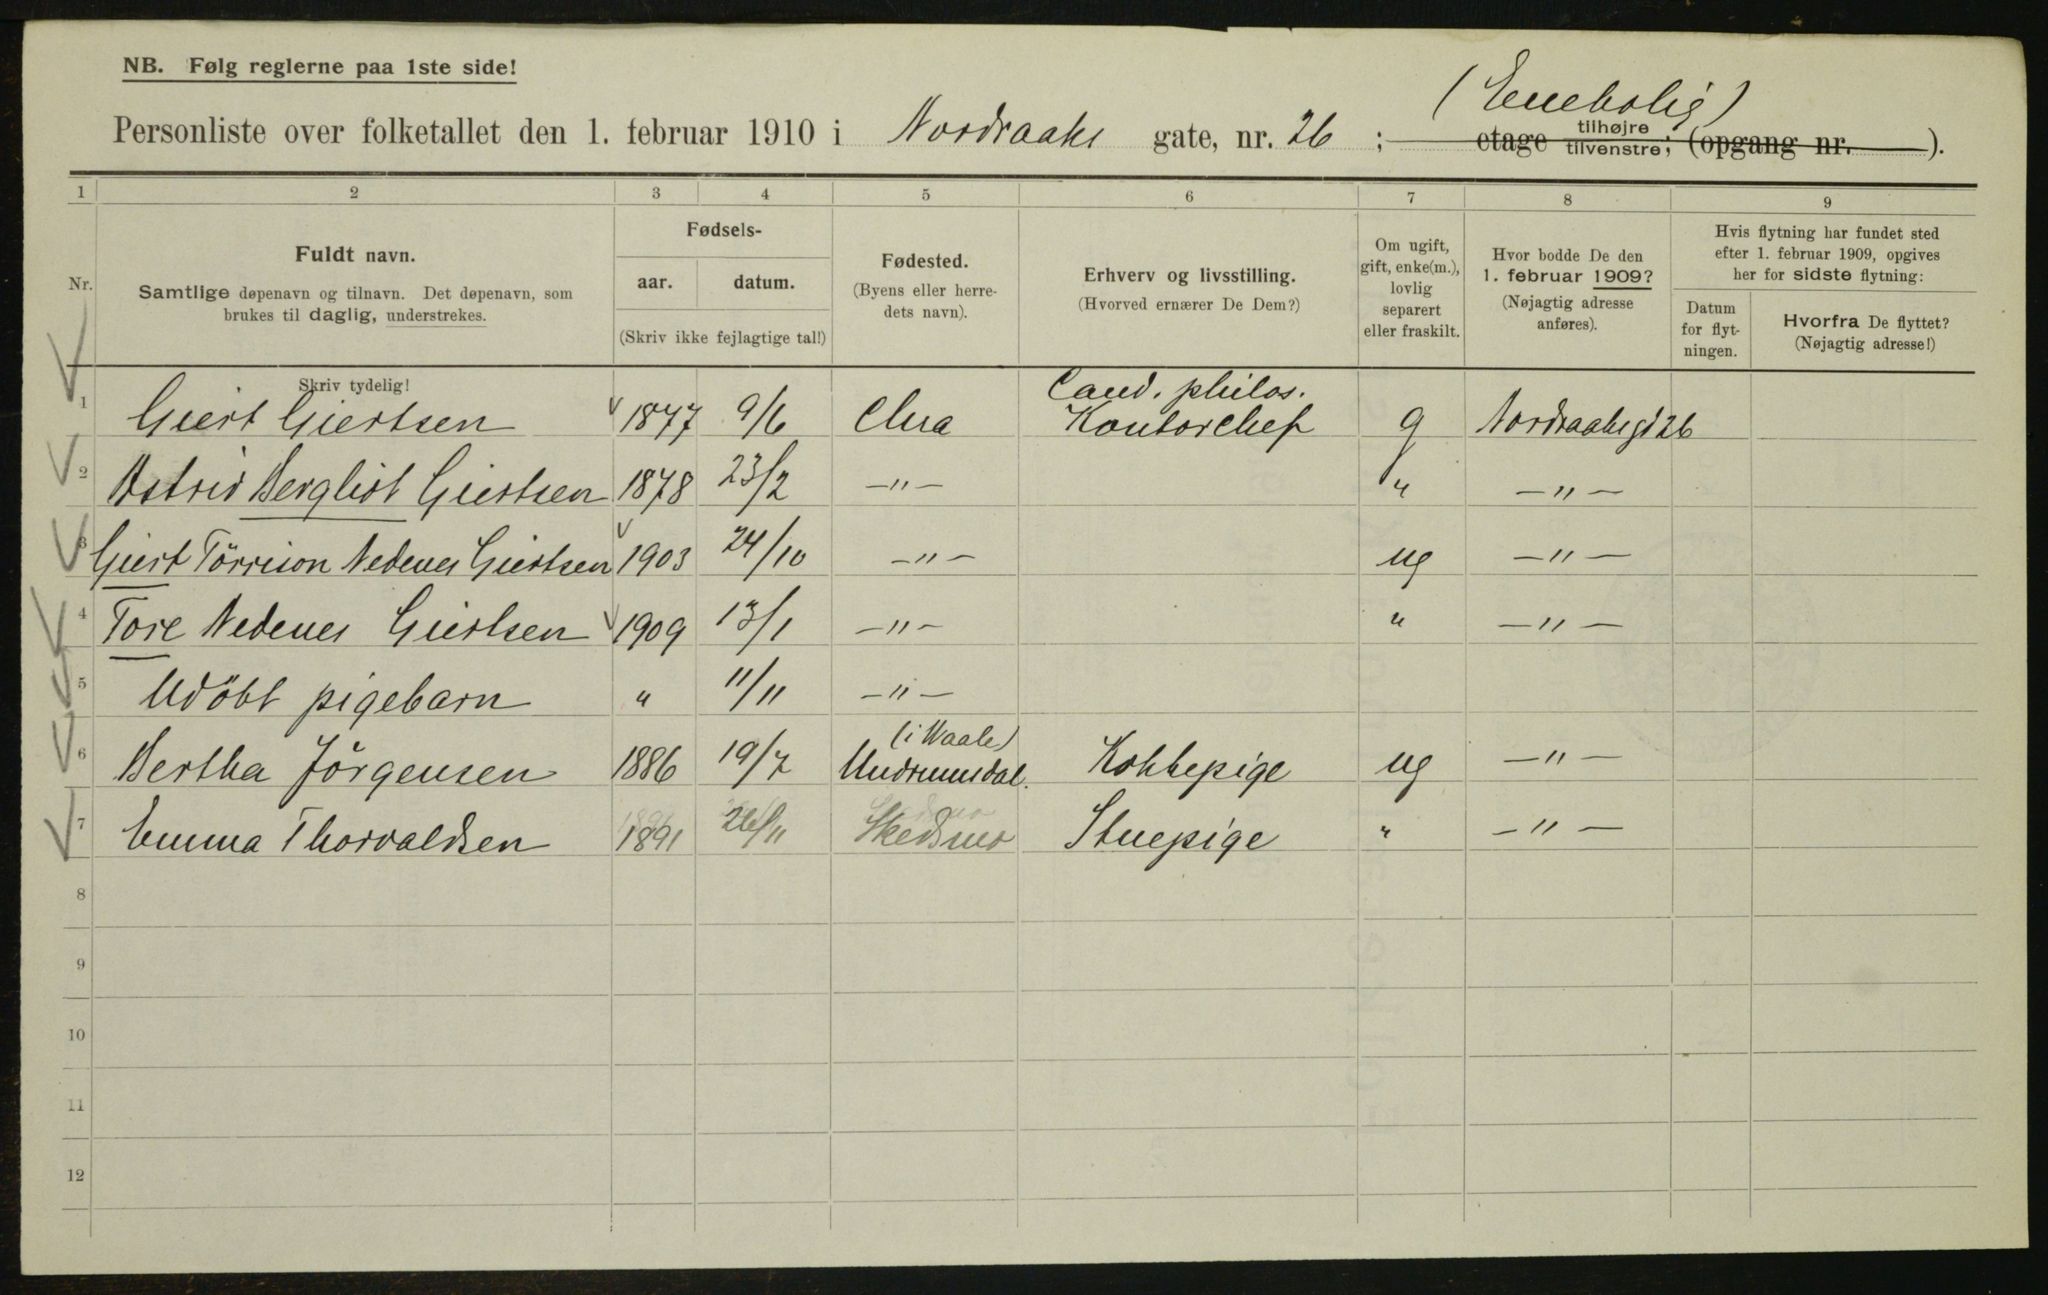 NB. Følg reglerne paa 1ste side!
(Enebolig)
Personliste over folketallet den 1. februar 1910 i Nordraaks gate, nr. 26 ; etage tilhøjre tilvenstre; (opgang nr. ).
1 2 3 4 5 6 7 8 9
Nr.
Fuldt navn.
Samtlige døpenavn og tilnavn. Det døpenavn, som
brukes til daglig, understrekes.
Fødsels-
aar. datum.
(Skriv ikke fejlagtige tal!)
Fødested.
(Byens eller herre-
dets navn).
Erhverv og livsstilling.
(Hvorved ernærer De Dem?)
Om ugift,
gift, enke(m.),
lovlig
separert
eller fraskilt.
Hvor bodde De den
1. februar 1909?
(Nøjagtig adresse
anføres).
Hvis flytning har fundet sted
efter 1. februar 1909, opgives
her for sidste flytning:
Datum
for flyt-
ningen.
Hvorfra De flyttet?
(Nøjagtig adresse!)
Skriv tydelig!
Cand. philos.
1 Giert Giertsen 1877 9/6 Chra Kontorchef g Nordraaksgd 26
2 Astrid Bergliot Giertsen 1878 23/2 —"— " —"—
3 Giert Törrison Nedenes Giertsen 1903 24/10 —"— ug —"—
4 Tore Nedenes Giertsen 1909 13/1 —"— " —"—
5 Udöbt pigebarn " 11/11 —"—
(i Waale)
6 Bertha Jörgensen 1886 19/7 Undrumsdal. Kokkepige ug —"—
7 Emma Thorvaldsen 1891 26/11 Skedsmo Stuepige " —"—
8
9
10
11
12